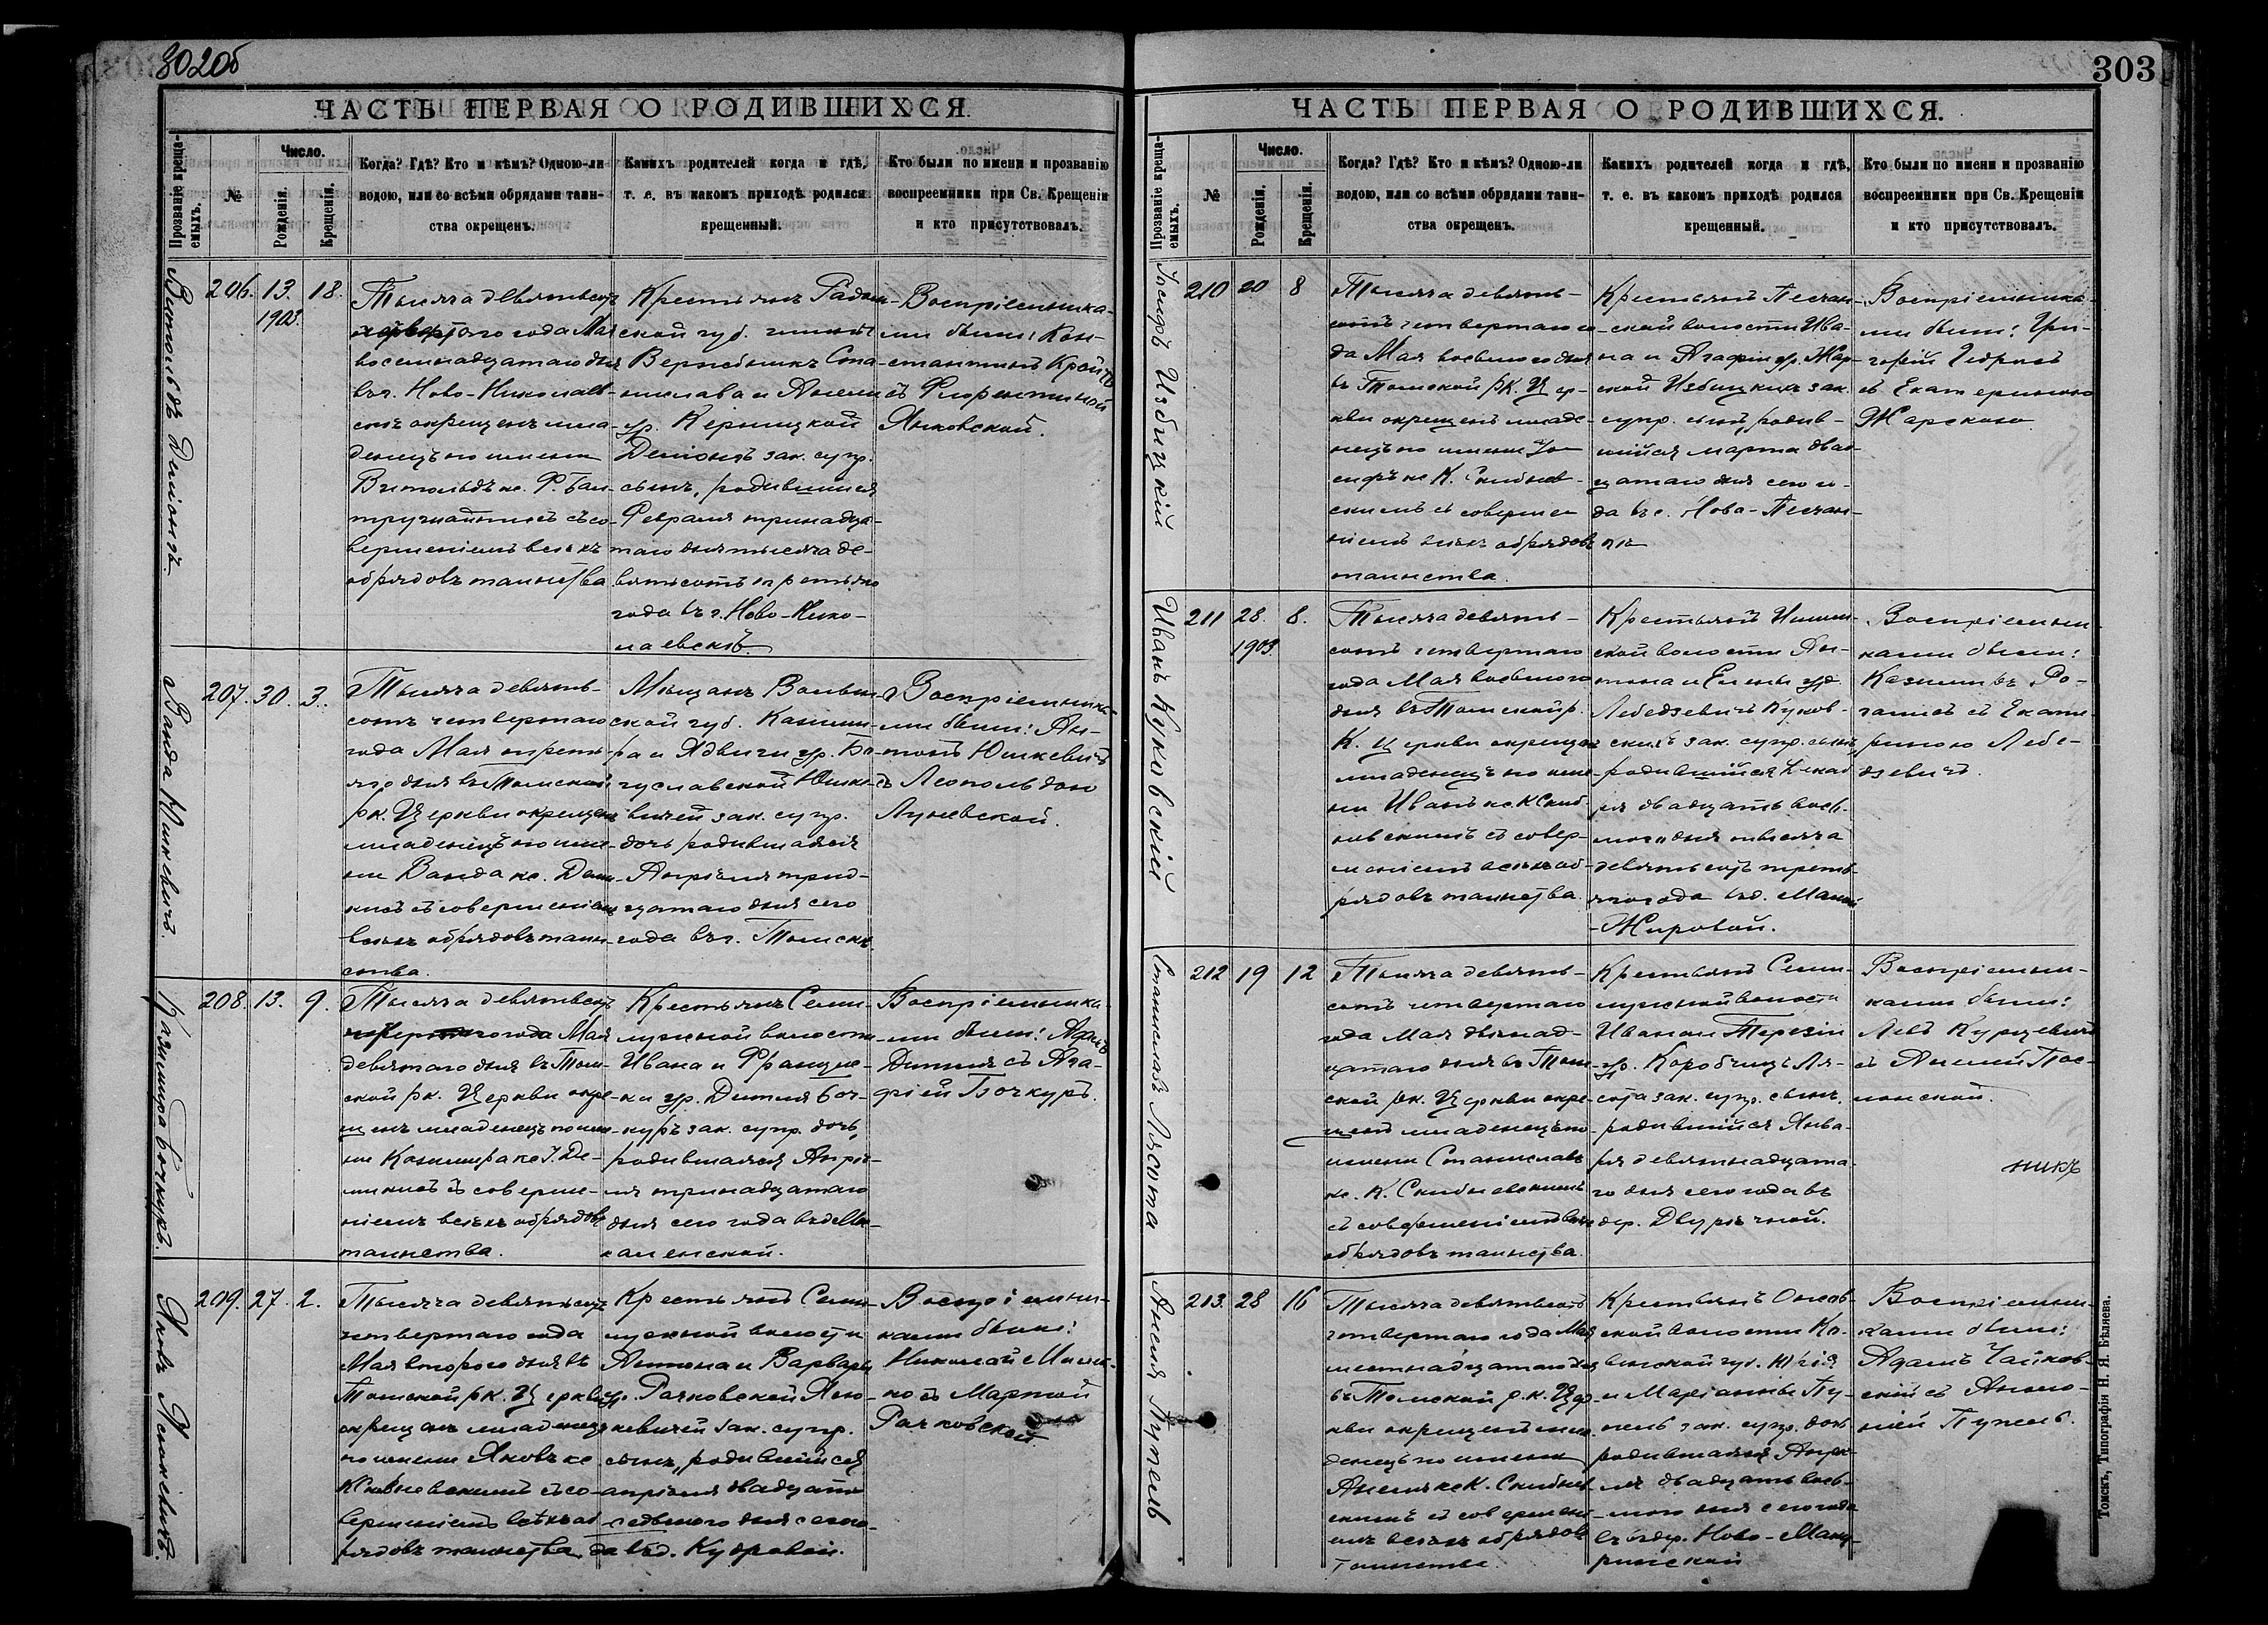 302об
ЧАСТЬ ПЕРВАЯ О РОДИВШИХСЯ.
Прозваніе крещаемыхъ.
№
Число.
Рожденія.
Крещенія.
Когда? Гдѣ? Кто и кѣмъ? Одною-ли
водою, или со всѣми обрядами таин-
ства окрещенъ.
Какихъ родителей когда и гдѣ,
т. е. въ какомъ приходѣ родился
крещенный.
Кто были по имени и прозванію
воспреемники при Св. Крещеніи
и кто присутствовалъ.
Витольдъ Деліонъ.
206.
13.
1903.
18.
Тысяча девятьсотъ
четвертаго года Мая
восемнадцатаго дня
въ г. Ново-Николаев-
скѣ окрещенъ мла-
денецъ по имени
Витольдъ кс.
съ со-
вершеніемъ всѣхъ
обрядовъ таинства
Крестьянъ Радом-
ской губ. гмины
Вержбникъ Ста-
нислава и Анели
ур.
Деліонъ зак. супр.
сынъ, родившійся
Февраля тринадца-
таго дня тысяча де-
вятьсотъ третьяго
года въ г. Ново-Нико-
лаевскѣ.
Воспріемника-
ми были: Кон-
стантинъ
съ Флорентиной
Яновской.
Ванда Юшкевичъ.
207.
30.
3.
Тысяча девять-
сотъ четвертаго
года Мая треть-
яго дня въ Томской
рк. Церкви окрещенъ
младенецъ по име-
ни Ванда кс. Деми-
кисъ съ совершеніемъ
всѣхъ обрядовъ таин-
ства.
Мѣщанъ Волын-
ской губ. Казими-
ра и Ядвиги ур. Бо-
гуславской Юшке-
вичей зак. супр.
дочь родившаяся
Апрѣля трид-
цатаго дня сего
года въ г. Томскѣ.
Воспріемника-
ми были: Ан-
тонъ Юшкевичъ
съ Леопольдою
Луневской.
Казимира Бочкуръ.
208.
13.
9.
Тысяча девятьсотъ
четвертаго года Мая
девятаго дня въ Том-
ской рк. Церкви окре-
щенъ младенецъ по име-
ни Казимира кс. І. Де-
микисъ съ соверше-
ніемъ всѣхъ обрядовъ
таинства.
Крестьянъ Семи-
лужной волости
Ивана и Францис-
ки ур. Дития Боч-
куръ зак. супр. дочь,
родившаяся Апрѣ-
ля тринадцатаго
дня сего года въ

Воспріемника-
ми были:
съ Ага-
фіей Бочкуръ.
Яковъ Яснокевичъ.
209.
27.
2.
Тысяча девятьсотъ
четвертаго года
Мая второго дня въ
Томской рк. Церкви
окрещенъ младенецъ
по имени Яковъ кс
К. Скибневскимъ съ со-
вершеніемъ всѣхъ об-
рядовъ таинства.
Крестьянъ Семи-
лужной волости
Антона и Варвары
ур. Рачковской Ясно-
кевичей зак. супр.
сынъ, родившійся
апрѣля двадцать
седьмого дня сего го-
да въ д. Кудровой.
Воспріемни-
ками были:
Николай
съ Мартой
Рачковской.
303
ЧАСТЬ ПЕРВАЯ О РОДИВШИХСЯ.
Прозваніе крещаемыхъ.
№
Число.
Рожденія.
Крещенія.
Когда? Гдѣ? Кто и кѣмъ? Одною-ли
водою, или со всѣми обрядами таин-
ства окрещенъ.
Какихъ родителей когда и гдѣ,
т. е. въ какомъ приходѣ родился
крещенный.
Кто были по имени и прозванію
воспреемники при Св. Крещеніи
и кто присутствовалъ.
Іосифъ Избицкій
210
20
8
Тысяча девять-
сотъ четвертаго го-
да Мая восьмого дня
въ Томской рк. Цер-
кви окрещенъ младе-
нецъ по имени Іо-
сифъ кс К. Скибнев-
скимъ съ соверше-
ніемъ всѣхъ обрядовъ
таинства.
Крестьянъ Песчан-
ской волости Ива-
на и Агафіи ур. Жар-
ской Избицкихъ зак.
супр. сынъ, родив-
шійся марта двад-
цатаго дня сего го-
да въ с. Ново-Песчан-

Воспріемника-
ми были: Гри-
горій
съ Екатериною
Жарскою
Иванъ Куковскій
211
28.
1903.
8.
Тысяча девять-
сотъ четвертаго
года Мая восьмого
дня въ Томской р.
К. Церкви окрещенъ
младенецъ по име-
ни Иванъ кс К Скиб-
невскимъ съ совер-
шеніемъ всѣхъ об-
рядовъ таинства.
Крестьянъ Ишим-
ской волости Ан-
тона и Елены ур.
Лебедзевичъ Куков-
скихъ зак. супр. сынъ
родившійся Декаб-
ря двадцать вось-
мого дня тысяча
девятьсотъ треть-
яго года въ д. Мало-
-Жировой.
Воспріемни-
ками были:
Казимиръ Ро-
галисъ съ Екате-
риною Лебе-
дзевичъ.
Станиславъ Лясота
212
19
12
Тысяча девять-
сотъ четвертаго
года Мая двѣнад-
цатаго дня въ Том-
ской рк. Церкви окре-
щенъ младенецъ по
имени Станиславъ
кс. К. Скибневскимъ
съ совершеніемъ всѣхъ
обрядовъ таинства.
Крестьянъ Семи-
лужной волости
Ивана и Терезіи
ур. Коробчицъ Ля-
сота зак. супр. сынъ,
родившійся Янва-
ря девятнадцата-
го дня сего года въ
дер. Двурѣчной.
Воспріемни-
ками были:
Левъ Курцевичъ
съ Анелей

никъ
Анеля Пупель
213.
28
16
Тысяча девятьсотъ
четвертаго года Мая
шестнадцатаго дня
въ Томской р.к. Цер-
кви окрещенъ мла-
денецъ по имени
Анеля кс К. Скибнев-
скимъ съ совершені-
емъ всѣхъ обрядовъ
таинства.
Крестьянъ
ской волости Ко-
венской губ. Юрія
и Маріанны Пу-
пель зак. супр. дочь
родившаяся Апрѣ-
ля двадцать вось-
мого дня сего года
въ дер. Ново-Ману-

Воспріемни-
ками были:
Адамъ Чайков-
скій съ Антоні-
ной Пупель.
Томскъ, Типографія Н. Я. Бѣляева.